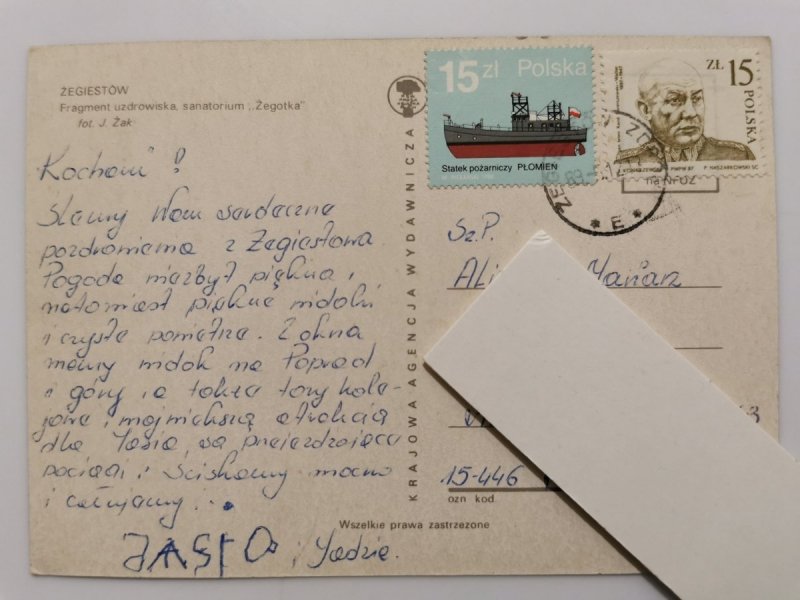 ŻEGIESTÓW
Fragment uzdrowiska, sanatorium „Żegotka"
fot. J. Żak
Kochani!
Ślemy Wam serdeczne
pozdrowienia z Żegiestowa.
Pogoda niezbyt piękna,
natomiast piękne widoki
i czyste powietrze. Z okna
mamy widok na Poprad
i góry, a także tory kole-
jowe i największą atrakcją
dla Jasia, są przejeżdżające
pociągi. Ściskamy mocno
i całujemy...
JASIO i Jadzia.
KRAJOWA AGENCJA WYDAWNICZA
Wszelkie prawa zastrzeżone
15 zł Polska
Statek pożarniczy PŁOMIEŃ
ZŁ 15
POLSKA
PWPW 87
na NFOZ
E
Sz.P.
15-446
ozn kod